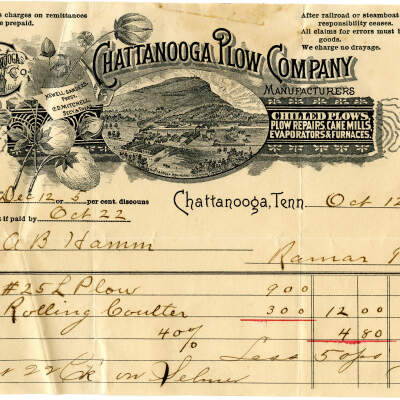 s charges on remittances
e prepaid.
After railroad or steamboat
responsibility ceases.
All claims for errors must b
goods.
We charge no drayage.
CHATTANOOGA PLOW COMPANY
MANUFACTURERS
NEWELL SANDERS,
PREST.
C.D. MITCHELL,
SEC'Y & TREAS.
CHILLED PLOWS,
PLOW REPAIRS, CANE MILLS,
EVAPORATORS & FURNACES.
Dec 12 5 or per cent. discount
if paid by Oct 22
Chattanooga, Tenn. Oct 12
A B Hamm
Ramar
#25 L Plow 9 00
Rolling Coulter 3 00 12 00
40% 4 80
Less 5 ops
22 Ck on Selmer